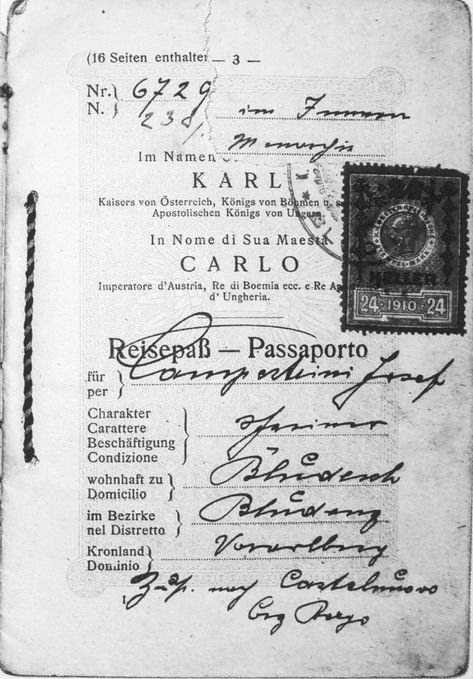 (16 Seiten enthalten — 3 —
Nr. 6729
N. 238
im Innern
Monarchie
Im Namen
KARL
Kaisers von Österreich, Königs von Böhmen u. s.
Apostolischen Königs von Ungarn.
In Nome di Sua Maestà
CARLO
Imperatore d'Austria, Re di Boemia ecc. e Re Ap
d'Ungheria.
HELLER
24 1910 24
Reisepaß — Passaporto
für
per
Camperlini Josef
Charakter
Carattere
Beschäftigung
Condizione
wohnhaft zu
Domicilio
Bludesch
im Bezirke
nel Distretto
Bludenz
Kronland
Dominio
Vorarlberg
nach Castelnuovo